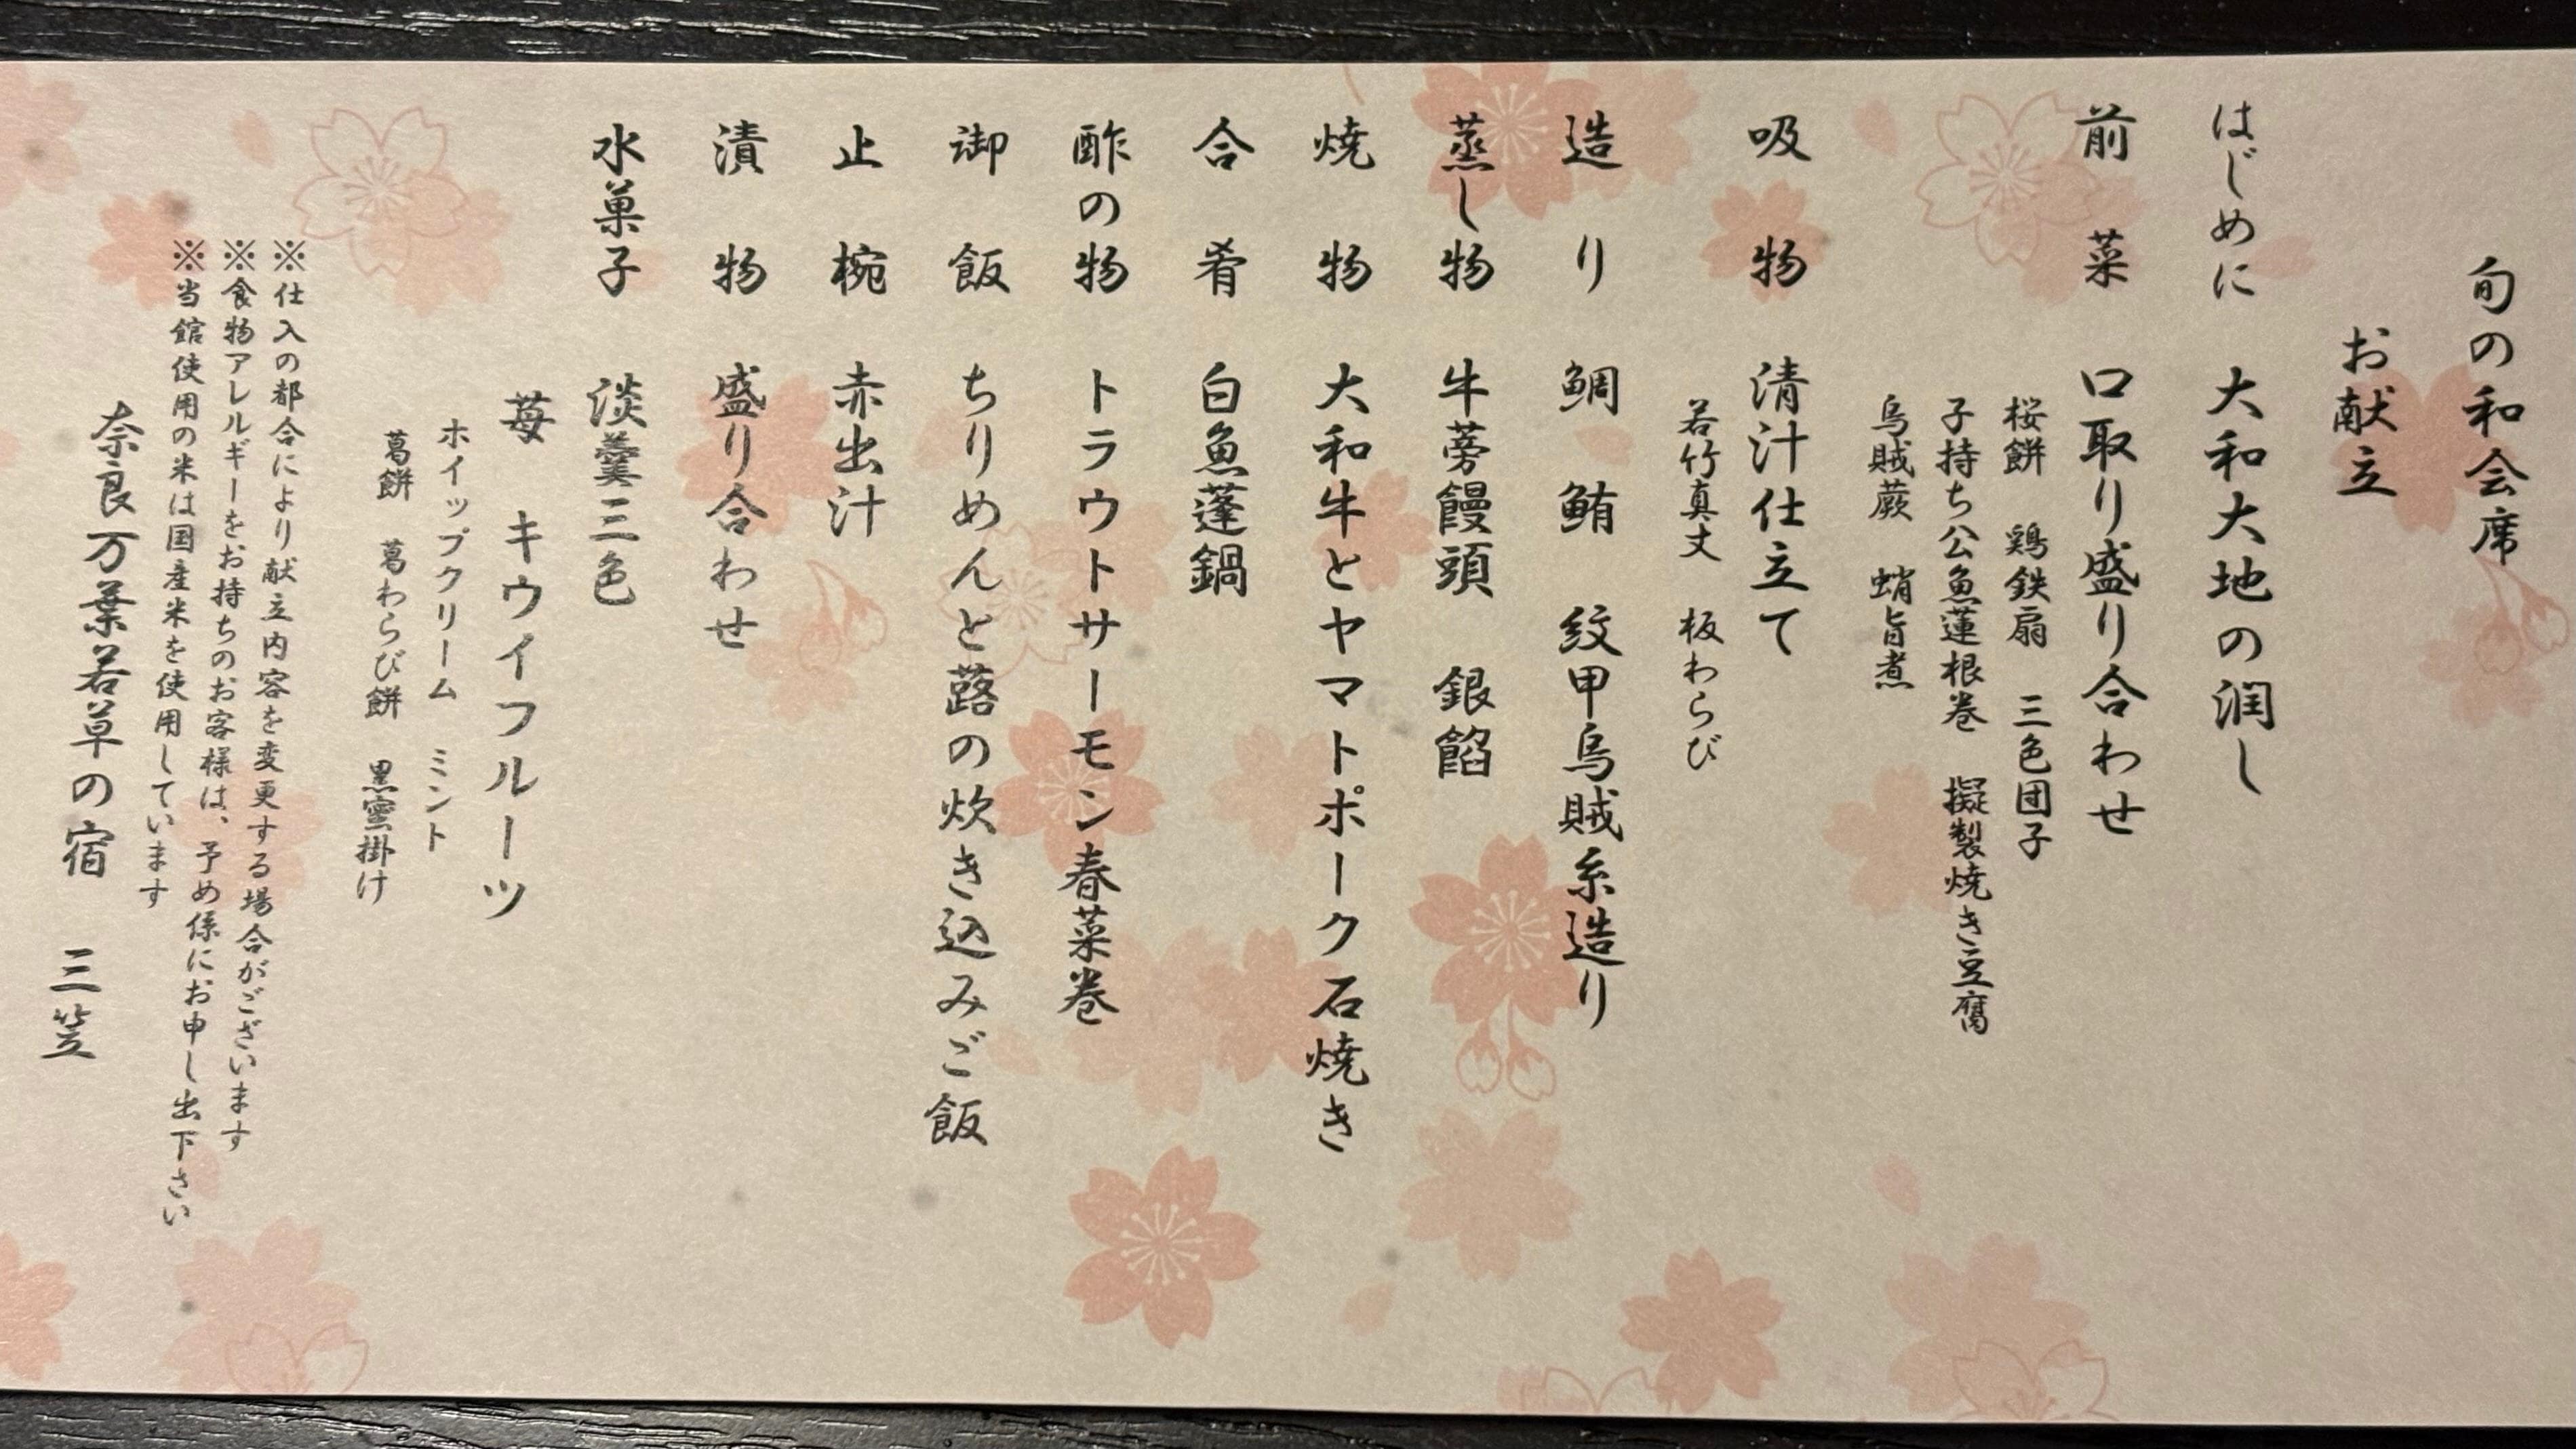 旬の和会席
お献立
はじめに 大和大地の潤し
前菜 口取り盛り合わせ
桜餅 鶏鉄扇 三色団子
子持ち公魚蓮根巻 擬製焼き豆腐
烏賊蕨 蛸旨煮
吸物 清汁仕立て
若竹真丈 板わらび
造り 鯛 鮪 紋甲烏賊糸造り
蒸し物 牛蒡饅頭 銀餡
焼物 大和牛とヤマトポーク石焼き
合肴 白魚蓬鍋
酢の物 トラウトサーモン春菜巻
御飯 ちりめんと蕗の炊き込みご飯
止椀 赤出汁
漬物 盛り合わせ
水菓子 淡羹三色
苺 キウイフルーツ
ホイップクリーム ミント
葛餅 葛わらび餅 黒蜜掛け
※仕入の都合により献立内容を変更する場合がございます
※食物アレルギーをお持ちのお客様は、予め係にお申し出下さい
※当館使用の米は国産米を使用しています
奈良万葉若草の宿 三笠